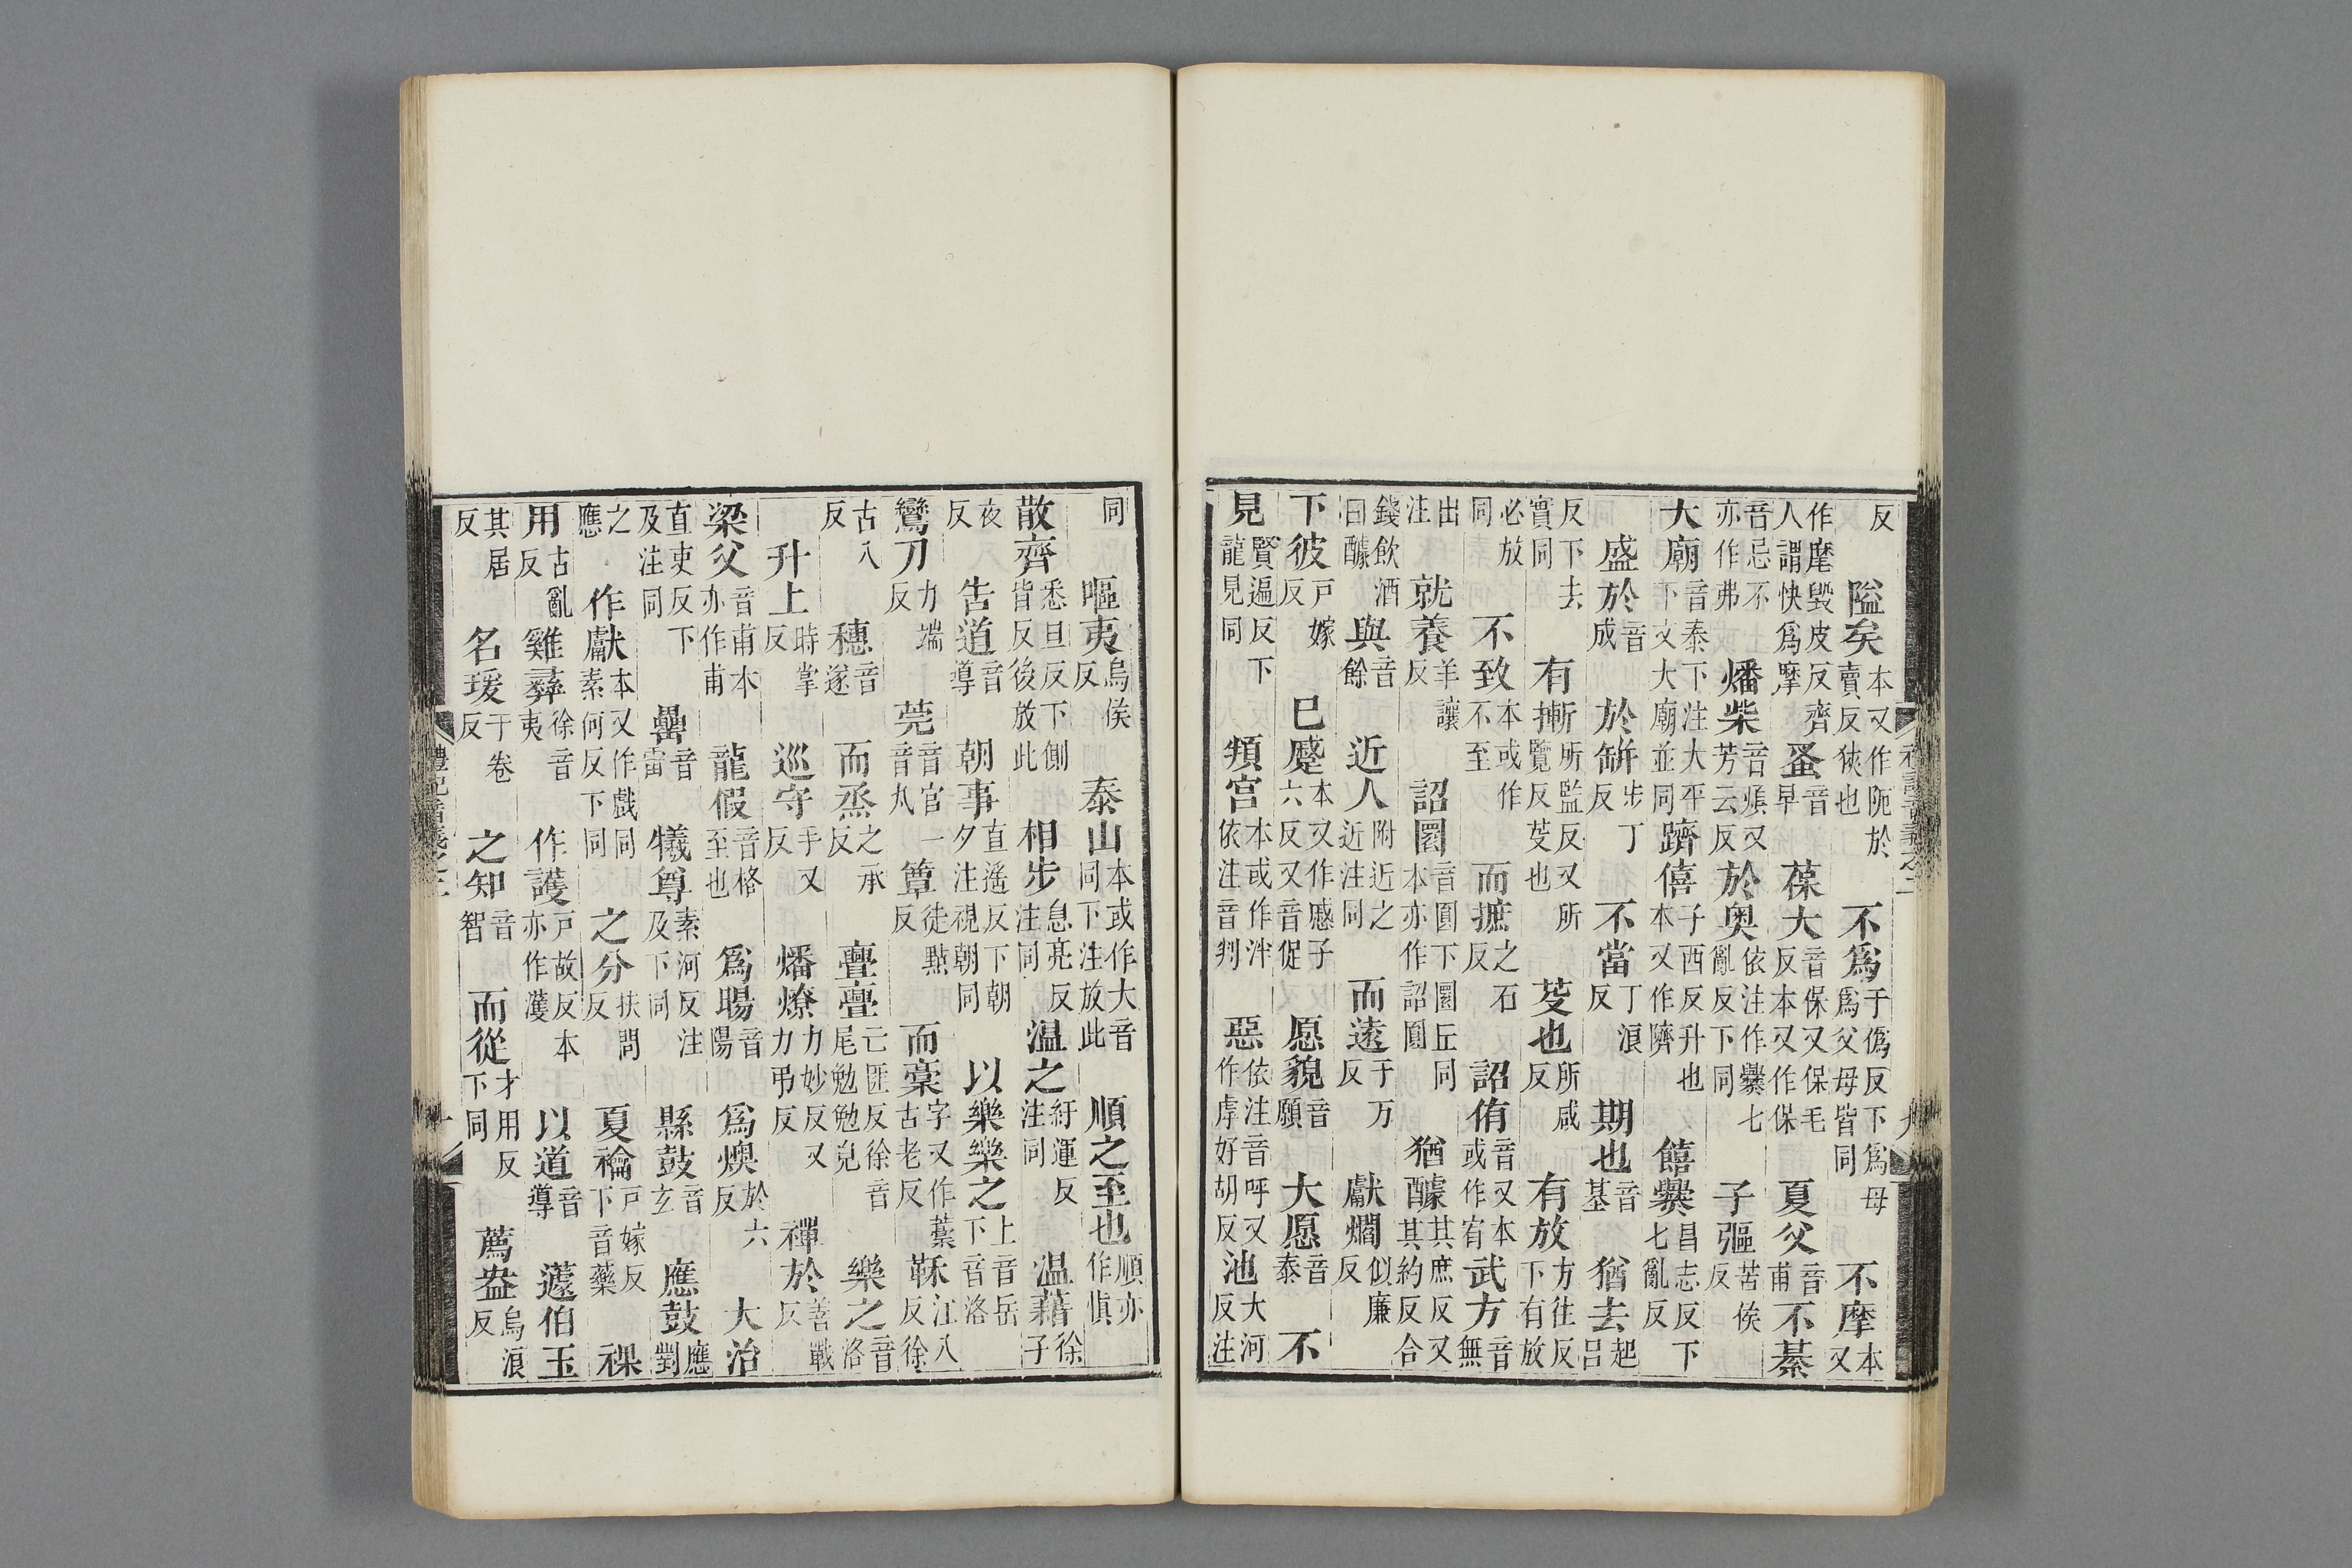 禮記音義之二　九
反　隘矣本又作阨於賣反狹也　不爲于僞反下爲母爲父母皆同　不摩本又
作麾毀皮反齊人謂快爲摩　蚤音早　葆大音保又保毛反本又作保　夏父音甫　不綦
音忌不亦作弗　燔柴音煩又芳云反　於奥依注作爨七亂反下同　子彄苦侯反
大廟音泰下注大平下文大廟並同　躋僖子西反升也本又作隮　饎爨昌志反下七亂反
盛於音成　於缾步丁反　不當丁浪反　期也音基　猶去起呂
反下去實同　有摲所監反又所覽反芟也　芟也所咸反　有放方往反下有放
必放同　不致本或作不至　而摭之石反　詔侑音又本或作宥　武方音無
出注　就養羊讓反　詔圜音圓下圜丘同本亦作詔圓　猶醵其庶反又其約反合
錢飲酒曰醵　與音餘　近人附近之近注同　而遠于万反　獻爓似廉反
下彼戸嫁反　已蹙本又作慼子六反又音促　愿貌音願　大愿音泰　不
見賢遍反下龍見同　頖宮本或作泮依注音判　惡依注音呼又作虖好胡反　池大河反注
同　嘔夷烏侯反　泰山本或作大音同下注放此　順之至也順亦作慎
散齊悉旦反下側皆反後放此　相步息亮反注同　温之紆運反注同　温藉徐子
夜反　告道音導　朝事直遙反下朝夕注視朝同　以樂樂之上音岳下音洛
鸞刀力端反　莞音官一音丸　簟徒點反　而稾字又作藁古老反　鞂江八反徐
古八反　穗音遂　而烝之承反　亹亹亡匪反徐音尾勉勉皃　樂之音洛
升上時掌反　巡守手又反　燔燎力妙反又力弔反　禪於善戰反
梁父音甫本亦作甫　龍假音格至也　爲暘音陽　爲燠於六反　大治
直吏反下及注同　罍音雷　犧尊素河反注及下同　縣鼓音玄　應鼓應對
之應　作獻本又作戲同素何反下同　之分扶問反　夏禴戸嫁反下音藥　祼
用古亂反　雞彝徐音夷　作護戸故反本亦作濩　以道音導　蘧伯玉
其居反　名瑗于卷反　之知音智　而從才用反下同　薦盎烏浪反
禮記音義之二　十